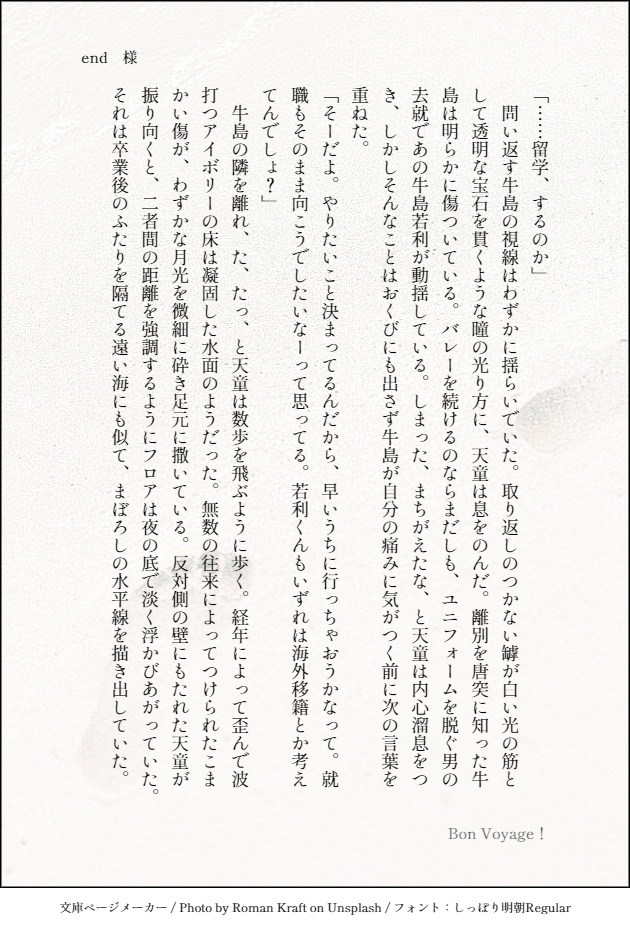 「……留学、するのか」
　問い返す牛島の視線はわずかに揺らいでいた。取り返しのつかない罅が白い光の筋と
して透明な宝石を貫くような瞳の光り方に、天童は息をのんだ。離別を唐突に知った牛
島は明らかに傷ついている。バレーを続けるのならまだしも、ユニフォームを脱ぐ男の
去就であの牛島若利が動揺している。しまった、まちがえたな、と天童は内心溜息をつ
き、しかしそんなことはおくびにも出さず牛島が自分の痛みに気がつく前に次の言葉を
重ねた。
「そーだよ。やりたいこと決まってるんだから、早いうちに行っちゃおうかなって。就
職もそのまま向こうでしたいなーって思ってる。若利くんもいずれは海外移籍とか考え
てんでしょ？」
　牛島の隣を離れ、た、たっ、と天童は数歩を飛ぶように歩く。経年によって歪んで波
打つアイボリーの床は凝固した水面のようだった。無数の往来によってつけられたこま
かい傷が、わずかな月光を微細に砕き足元に撒いている。反対側の壁にもたれた天童が
振り向くと、二者間の距離を強調するようにフロアは夜の底で淡く浮かびあがっていた。
それは卒業後のふたりを隔てる遠い海にも似て、まぼろしの水平線を描き出していた。
end　様
Bon Voyage！
文庫ページメーカー / Photo by Roman Kraft on Unsplash / フォント：しっぽり明朝Regular